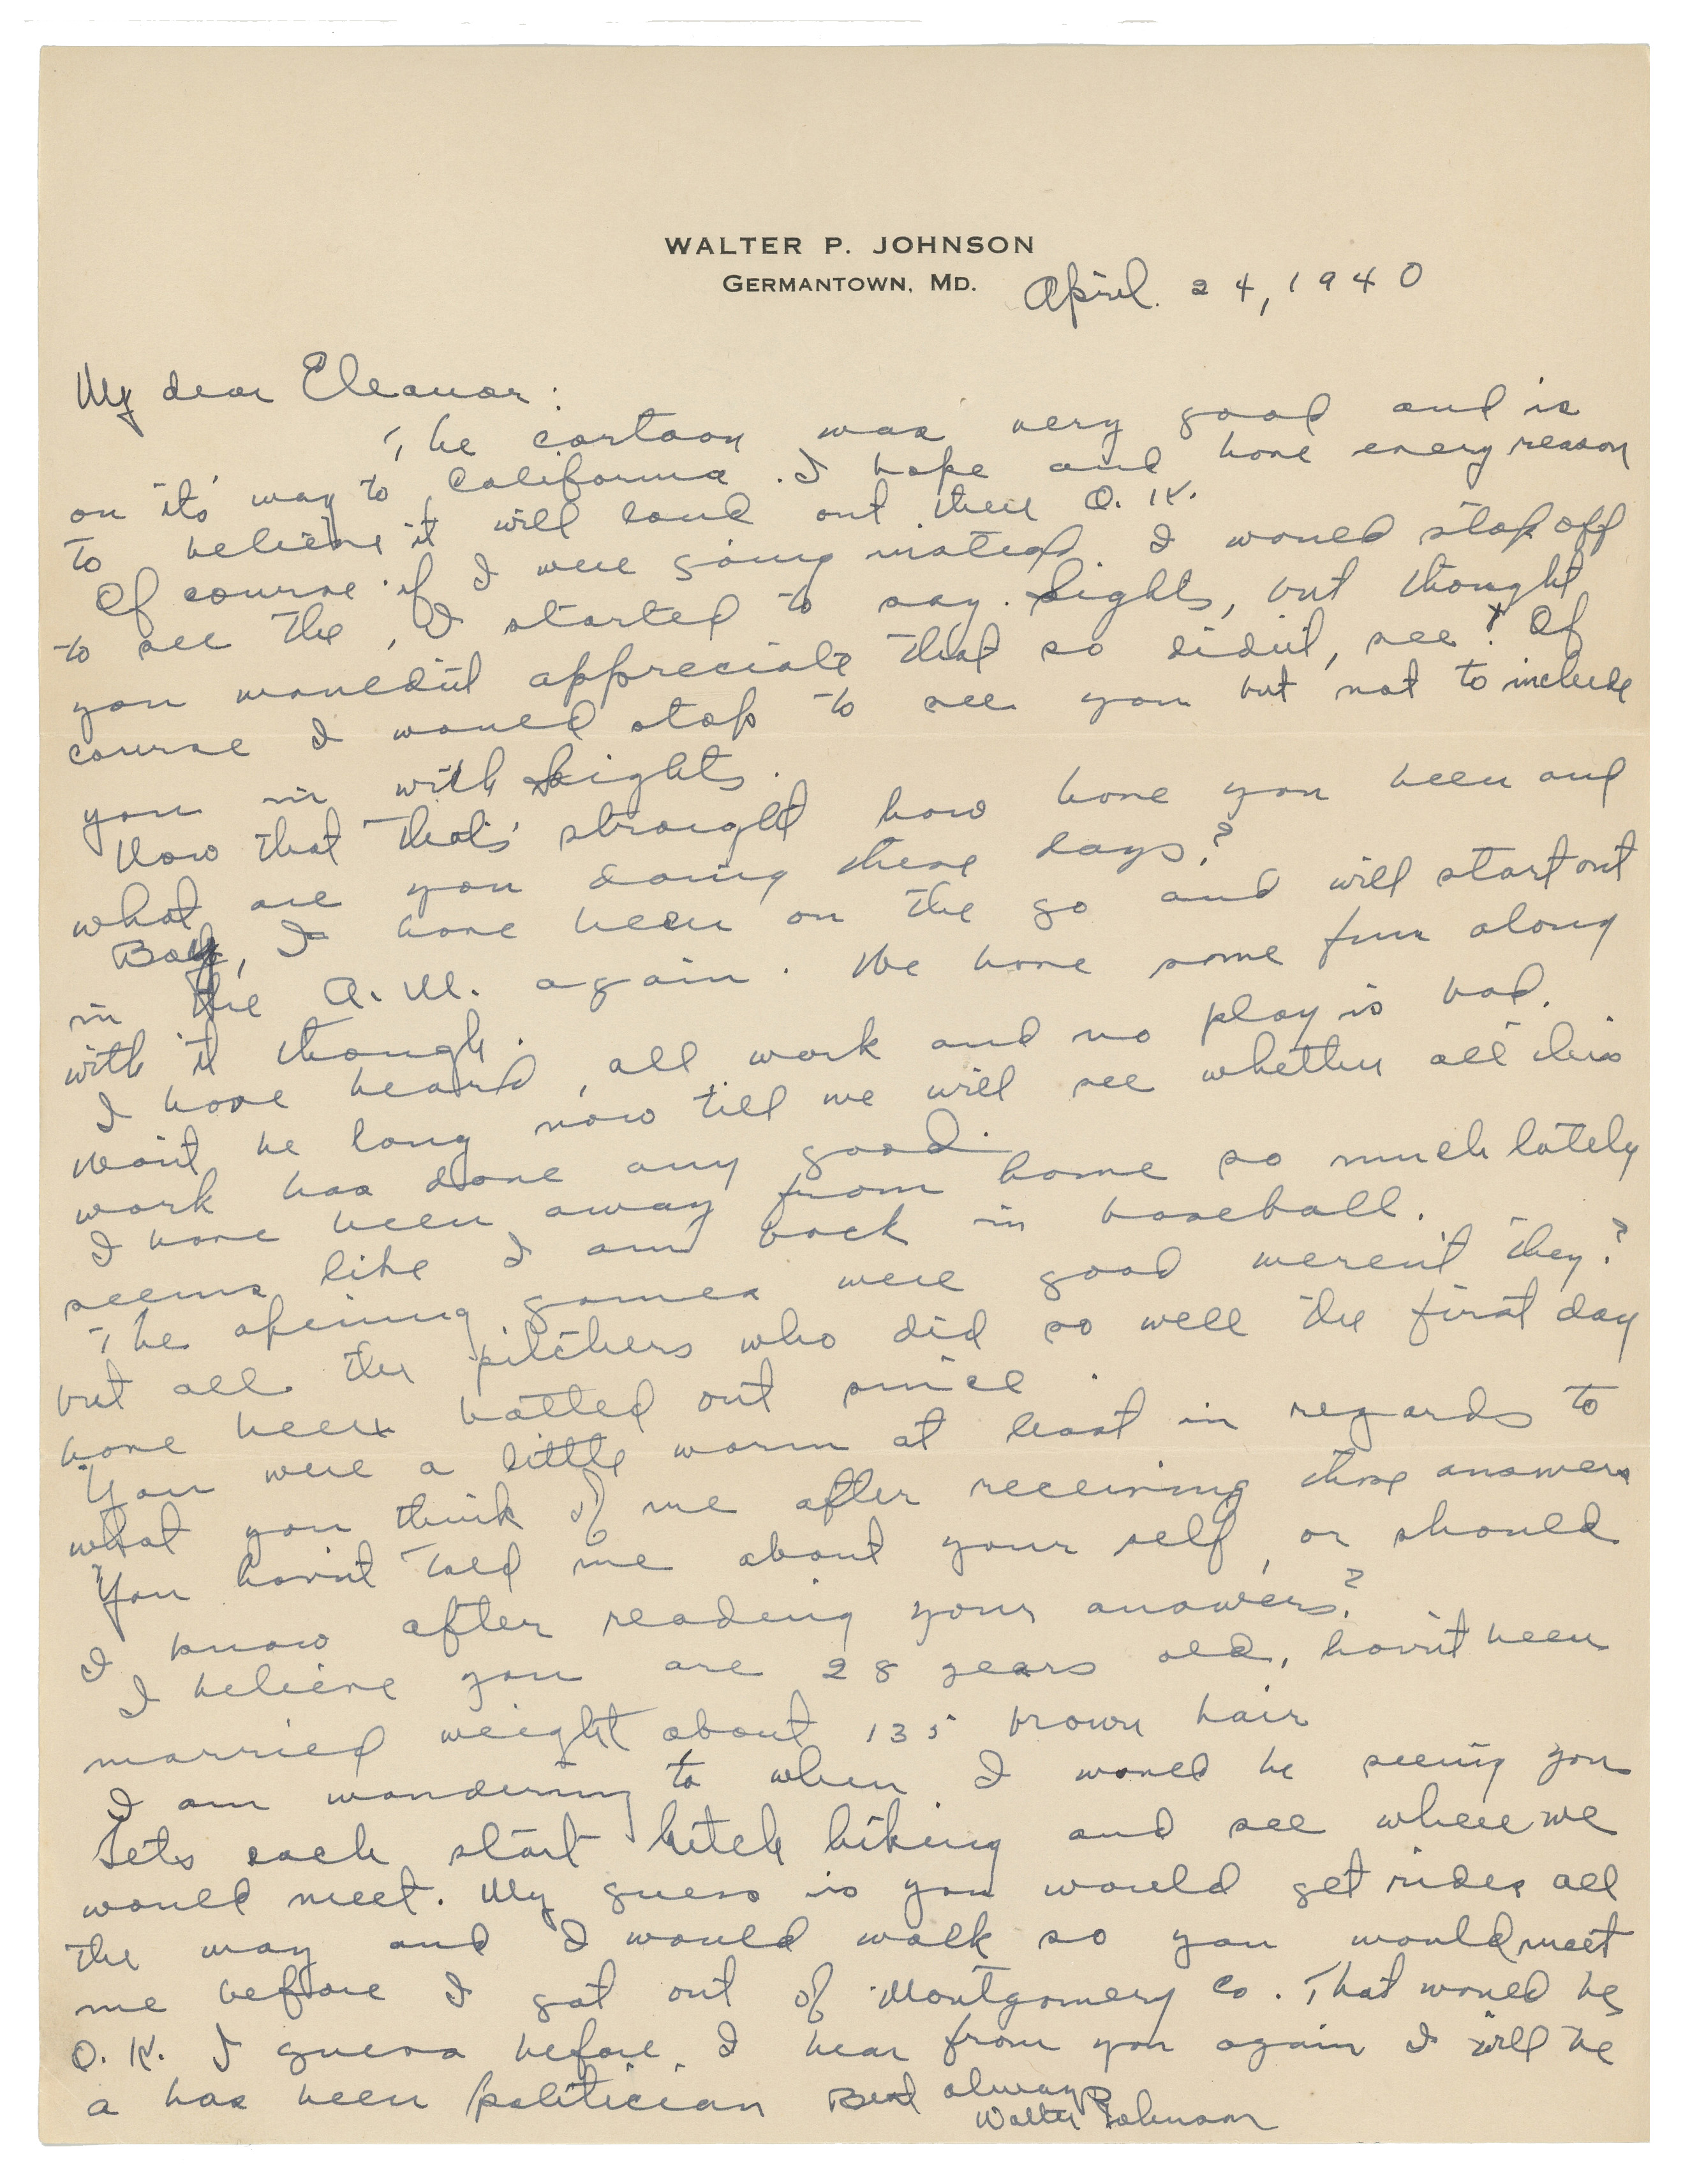 WALTER P. JOHNSON
GERMANTOWN, MD.
April. 24, 1940
My dear Eleanor:
The cartoon was very good and is
on its' way to California. I hope and have every reason
to believe it will land out there O.K.
Of course if I were going instead I would stop off
to see the, I started to say. Sights, but thought
you wouldn't appreciate that so didn't, see? Of
course I would stop to see you but not to include
you in with Sights.
Now that that's' straight how have you been and
what are you doing these days?
Boy, I have been on the go and will start out
in the A.M. again. We have some fun along
with it though.
I have heard, all work and no play is bad.
Won't be long now till we will see whether all this
work has done any good.
I have been away from home so much lately
seems like I am back in baseball.
The opening games were good weren't they?
but all the pitchers who did so well the first day
have been batted out since.
You were a little warm at least in regards to
what you think of me after receiving those answers
You havn't told me about your self, or should
I know after reading your answers?
I believe you are 28 years old, havn't been
married weight about 135 brown hair
I am wondering to when I would be seeing you
Lets each start hitch hiking and see where we
would meet. My guess is you would get rides all
the way and I would walk so you would meet
me before I got out of Montgomery Co. That would be
O.K. I guess before I hear from you again I will be
a has been politician Best always
Walter Johnson